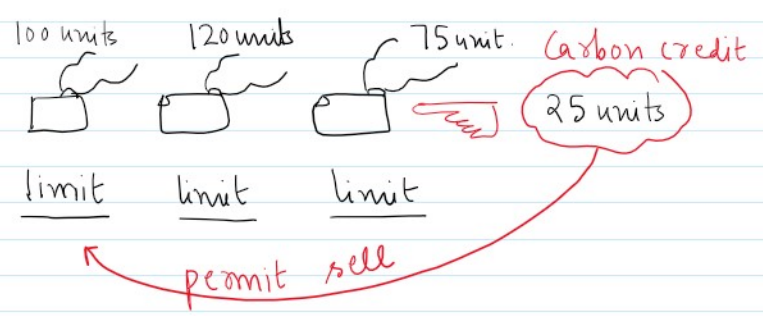 100 units 120 units 75 unit. Carbon credit
25 units
limit limit limit
permit sell